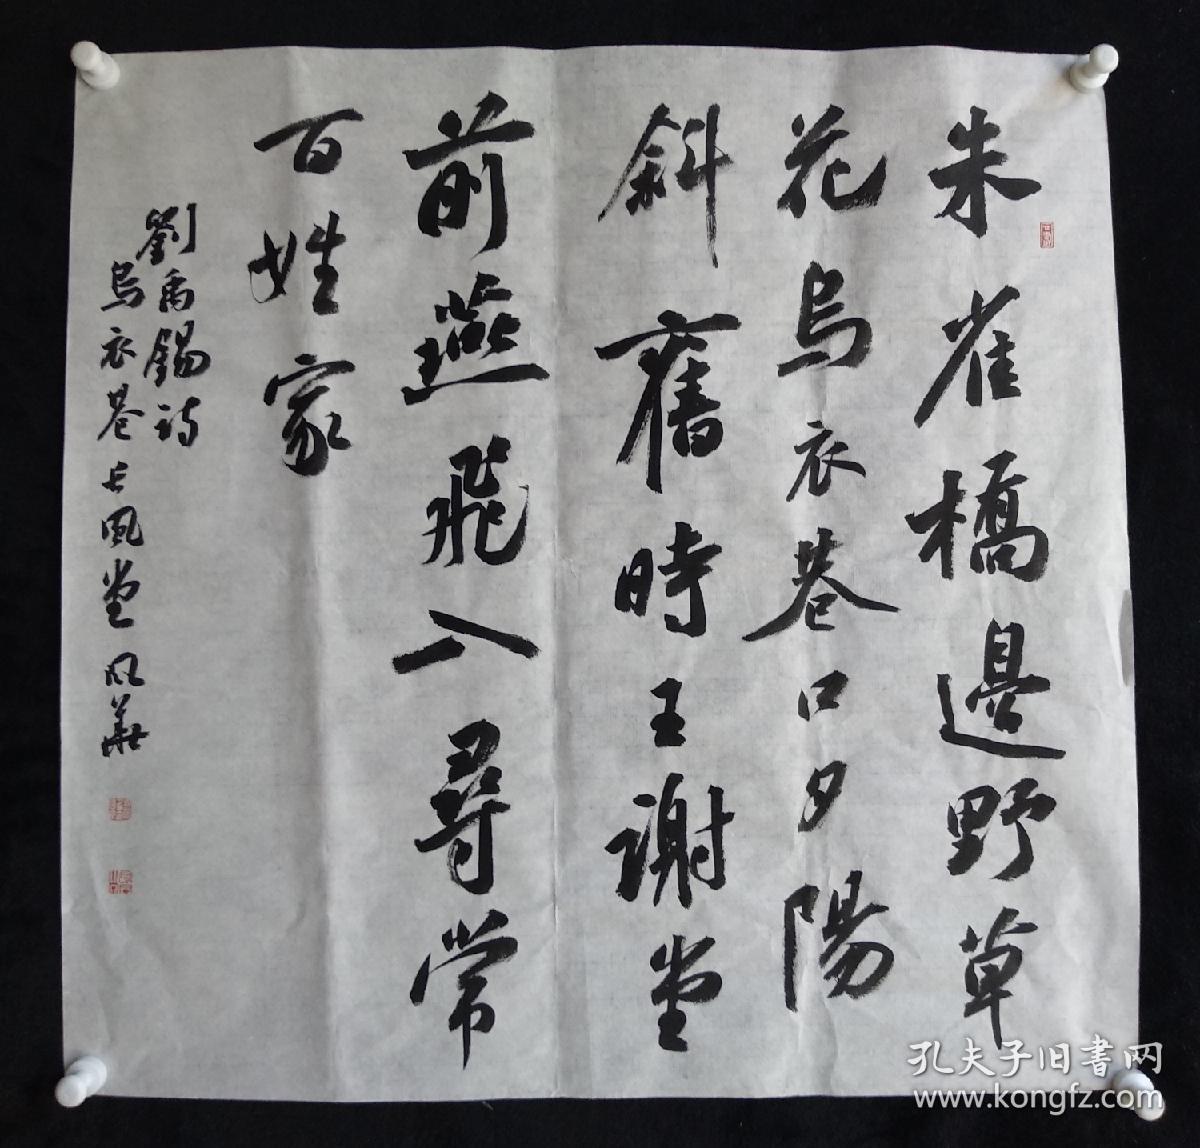 朱雀橋邊野草
花烏衣巷口夕陽
斜舊時王謝堂
前燕飛入尋常
百姓家
劉禹錫詩
烏衣巷長風堂風華
孔夫子旧書网
www.kongfz.com